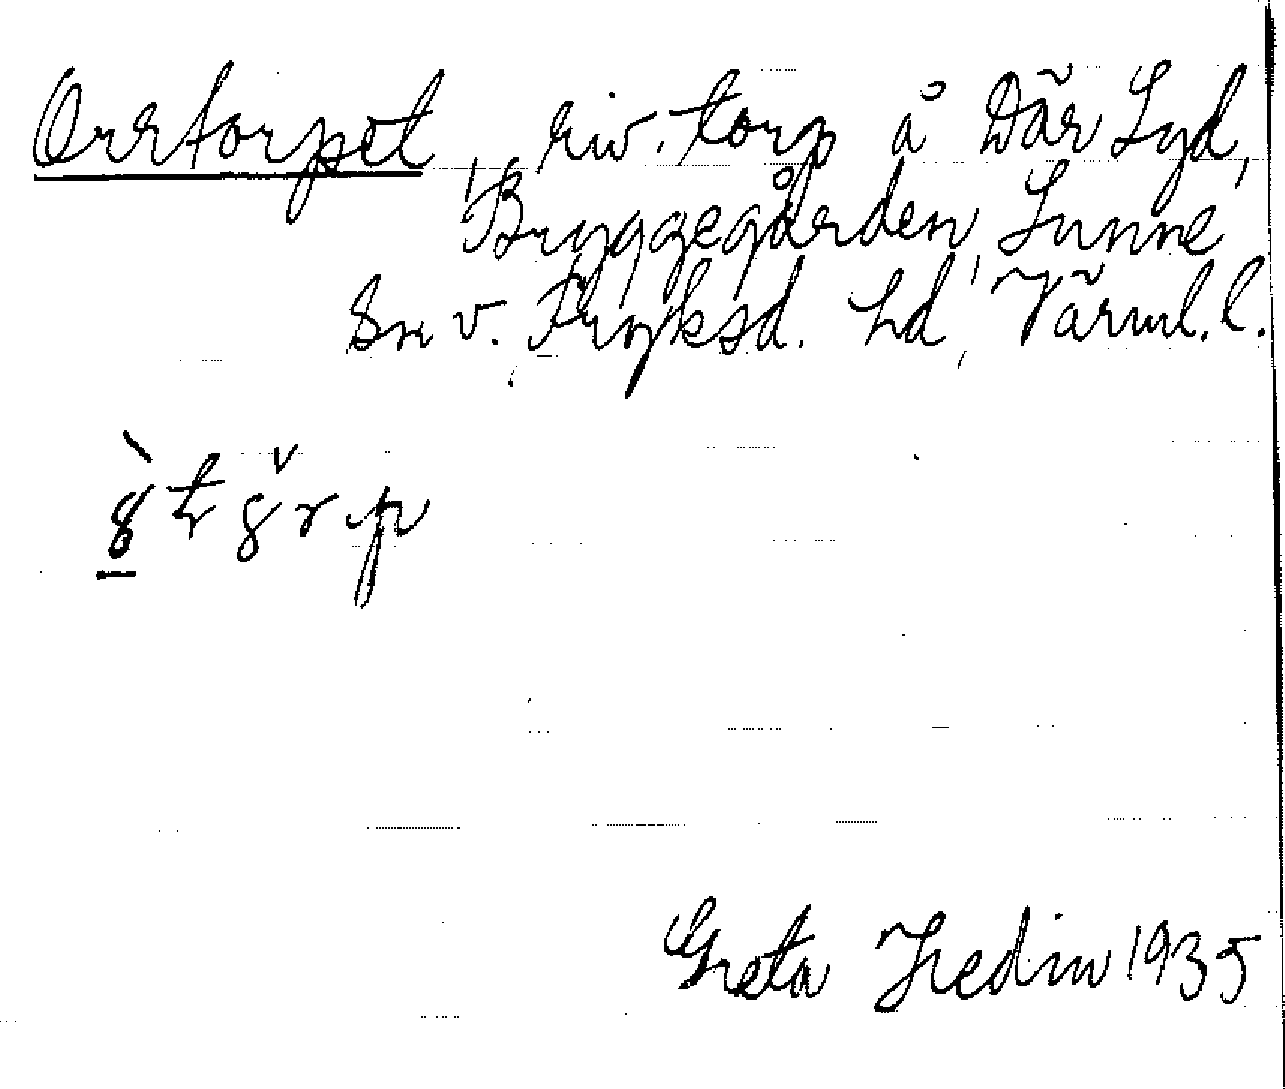 Orrtorpet, riv. torp å Där Syd,
Bryggegården, Sunne
sn v. Fryksd. hd, Värml. l.
Greta Hedin 1935